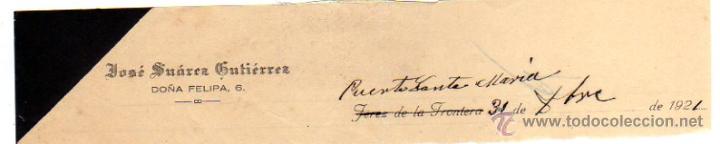 José Suárez Gutiérrez
DOÑA FELIPA, 6.
Puerto Santa Maria
Jerez de la Frontera 31 de Xbre de 1921
www.todocoleccion.net